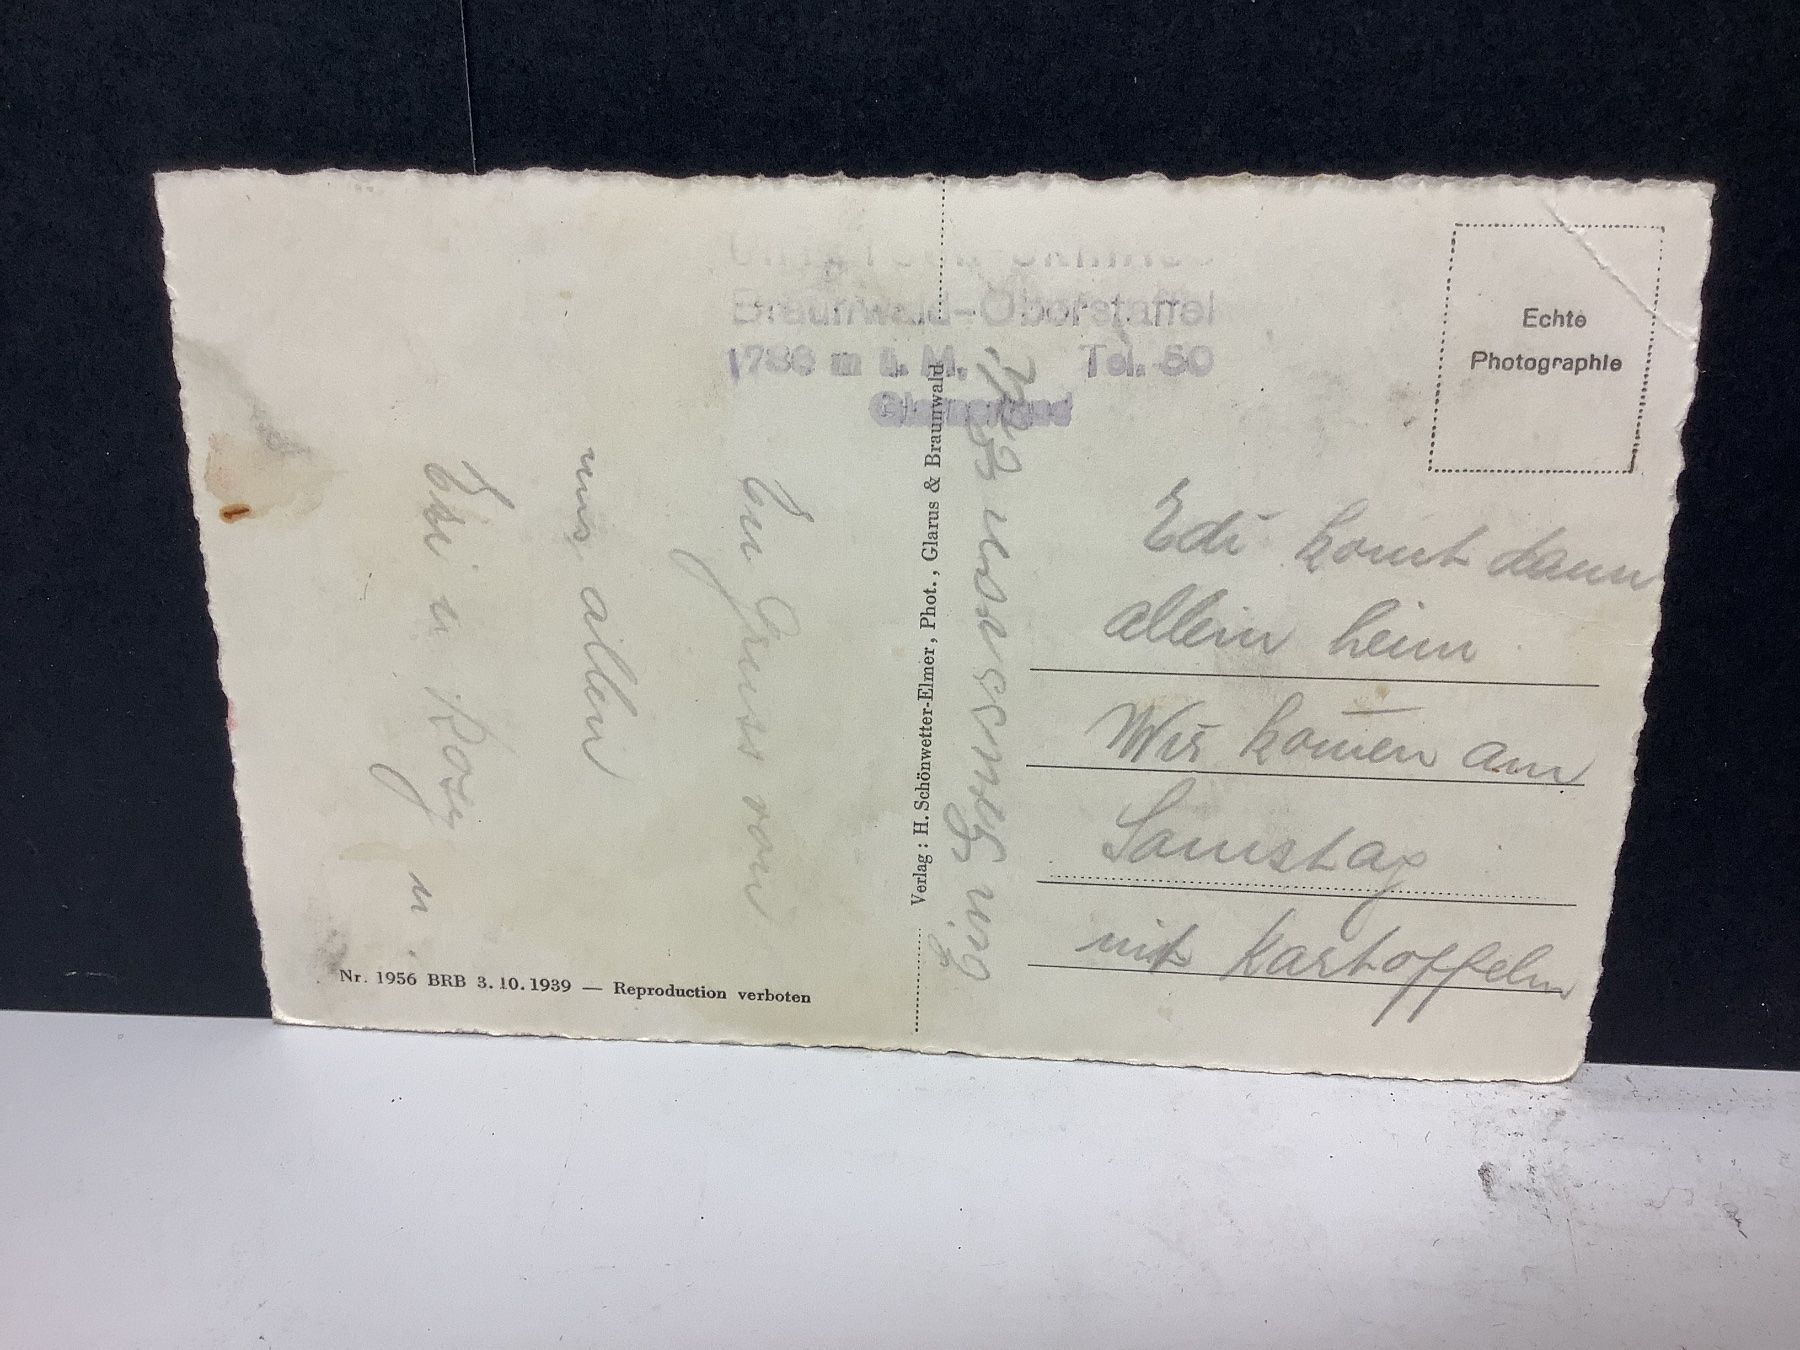 Braunwald-Oberstaffel
1780 m ü. M. Tel. 50
Glarnerland
Echte
Photographie
Edi komt dann
allein heim
Wir komen am
Samstag
mit Kartoffeln
Verlag: H. Schönwetter-Elmer, Phot., Glarus & Braunwald
Ein
Ein Gruss von
uns allen
Edi u Rosy
u
Nr. 1956 BRB 3.10.1939 — Reproduction verboten